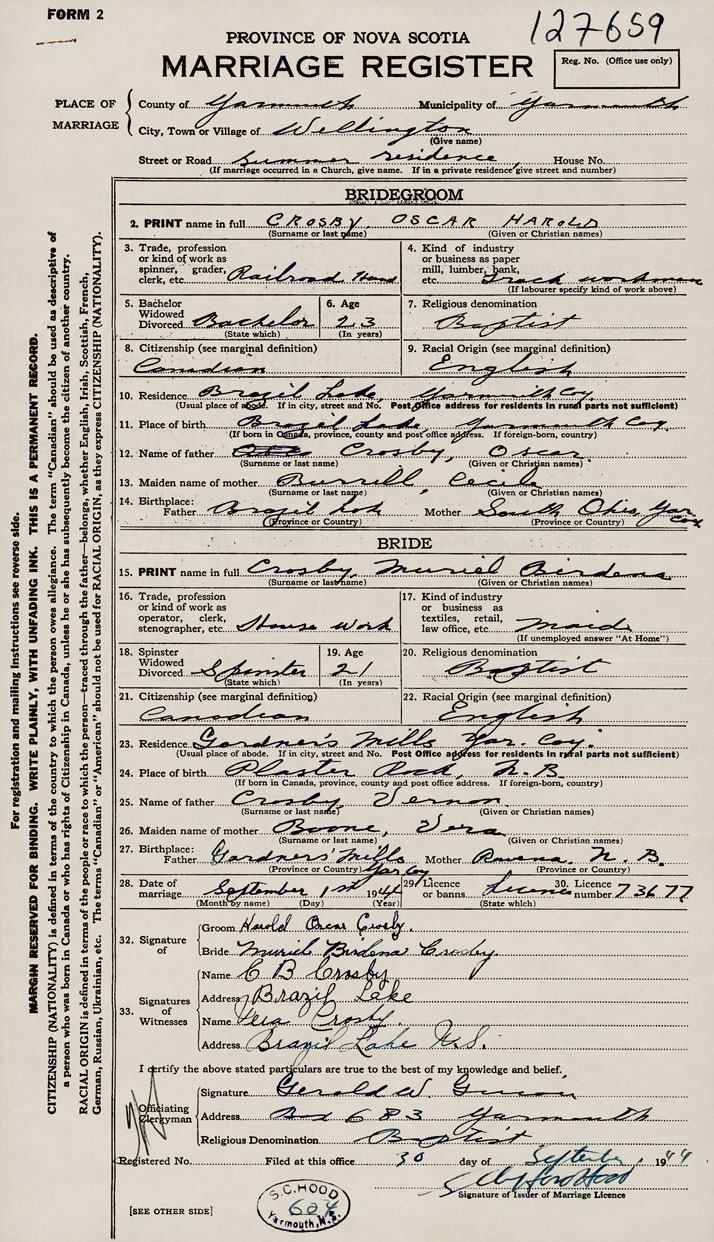 FORM 2
127659
PROVINCE OF NOVA SCOTIA
MARRIAGE REGISTER
Reg. No. (Office use only)
PLACE OF MARRIAGE
County of Yarmouth Municipality of Yarmouth
City, Town or Village of Wellington
(Give name)
Street or Road Summer residence, House No.
(If marriage occurred in a Church, give name. If in a private residence give street and number)
BRIDEGROOM
2. PRINT name in full CROSBY, OSCAR HAROLD
(Surname or last name) (Given or Christian names)
3. Trade, profession or kind of work as spinner, grader, clerk, etc. Railroad Hand
4. Kind of industry or business as paper mill, lumber, bank, etc. Track workman
(If labourer specify kind of work above)
5. Bachelor Widowed Divorced Bachelor
(State which)
6. Age 23
(In years)
7. Religious denomination Baptist
8. Citizenship (see marginal definition) Canadian
9. Racial Origin (see marginal definition) English
10. Residence Brazil Lake, Yarmouth Coy.
(Usual place of abode. If in city, street and No. Post Office address for residents in rural parts not sufficient)
11. Place of birth Brazil Lake, Yarmouth Coy.
(If born in Canada, province, county and post office address. If foreign-born, country)
12. Name of father Crosby, Oscar
(Surname or last name) (Given or Christian names)
13. Maiden name of mother Burrell, Cecile
(Surname or last name) (Given or Christian names)
14. Birthplace: Father Brazil Lake Mother South Ohio, Yar. Coy
(Province or Country) (Province or Country)
BRIDE
15. PRINT name in full Crosby, Muriel Birdena
(Surname or last name) (Given or Christian names)
16. Trade, profession or kind of work as operator, clerk, stenographer, etc. House work
17. Kind of industry or business as textiles, retail, law office, etc. Maid
(If unemployed answer "At Home")
18. Spinster Widowed Divorced Spinster
(State which)
19. Age 21
(In years)
20. Religious denomination Baptist
21. Citizenship (see marginal definition) Canadian
22. Racial Origin (see marginal definition) English
23. Residence Gardner's Mills Yar. Coy.
(Usual place of abode. If in city, street and No. Post Office address for residents in rural parts not sufficient)
24. Place of birth Plaster Rock, N.B.
(If born in Canada, province, county and post office address. If foreign-born, country)
25. Name of father Crosby, Vernon
(Surname or last name) (Given or Christian names)
26. Maiden name of mother Boone, Vera
(Surname or last name) (Given or Christian names)
27. Birthplace: Father Gardners' Mills Yar Coy Mother N. B.
(Province or Country) (Province or Country)
28. Date of marriage September 1st 1944
(Month by name) (Day) (Year)
29. Licence or banns License
(State which)
30. Licence number 73677
32. Signature of
Groom Harold Oscar Crosby.
Bride Muriel Birdena Crosby
33. Signatures of Witnesses
Name C B Crosby
Address Brazil Lake
Name Vera Crosby.
Address Brazil Lake N.S.
I certify the above stated particulars are true to the best of my knowledge and belief.
Officiating Clergyman
Signature Gerald W.
Address Box 683 Yarmouth
Religious Denomination Baptist
Registered No. Filed at this office 30 day of September, 1944
S. Clifford Hood
Signature of Issuer of Marriage Licence
S.C. HOOD
604
Yarmouth, N.S.
[SEE OTHER SIDE]
For registration and mailing instructions see reverse side.
MARGIN RESERVED FOR BINDING. WRITE PLAINLY, WITH UNFADING INK. THIS IS A PERMANENT RECORD.
CITIZENSHIP (NATIONALITY) is defined in terms of the country to which the person owes allegiance. The term "Canadian" should be used as descriptive of
a person who was born in Canada or who has rights of Citizenship in Canada, unless he or she has subsequently become the citizen of another country.
RACIAL ORIGIN is defined in terms of the people or race to which the person—traced through the father—belongs, whether English, Irish, Scottish, French,
German, Russian, Ukrainian, etc. The terms "Canadian" or "American" should not be used for RACIAL ORIGIN, as they express CITIZENSHIP (NATIONALITY).